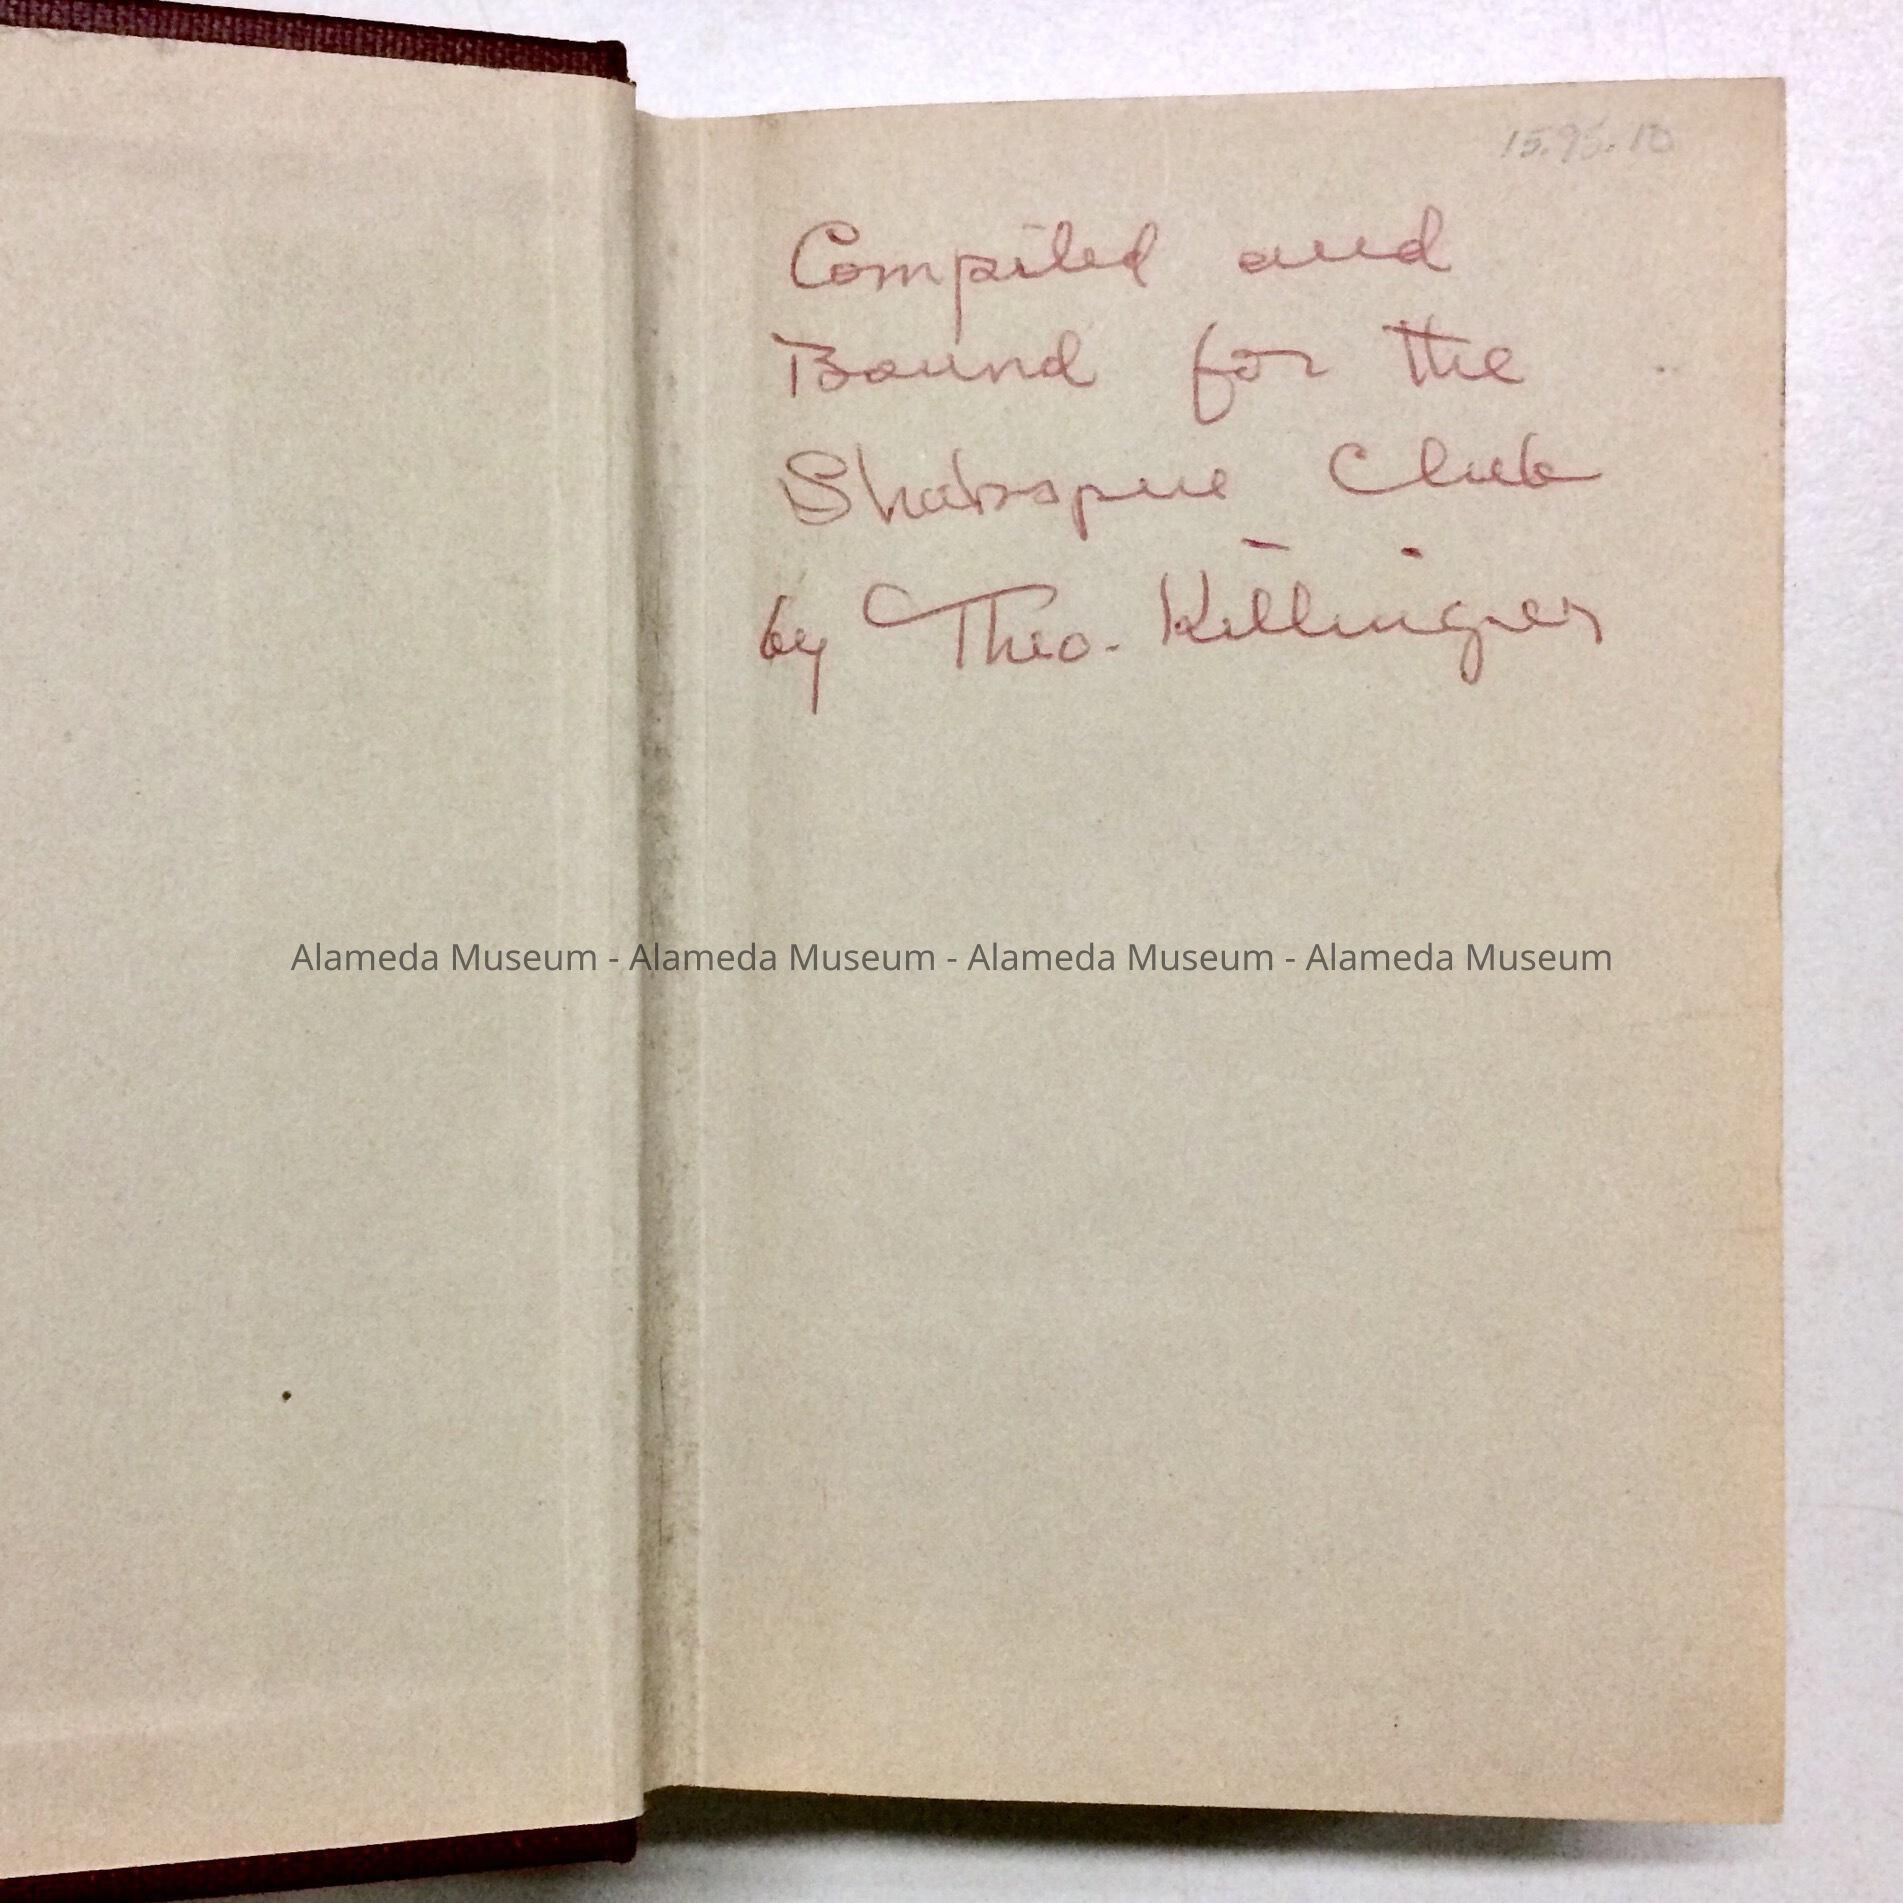 15.95.10
Compiled and
Bound for the
Shakspere Club
by Theo. Killinger
Alameda Museum - Alameda Museum - Alameda Museum - Alameda Museum